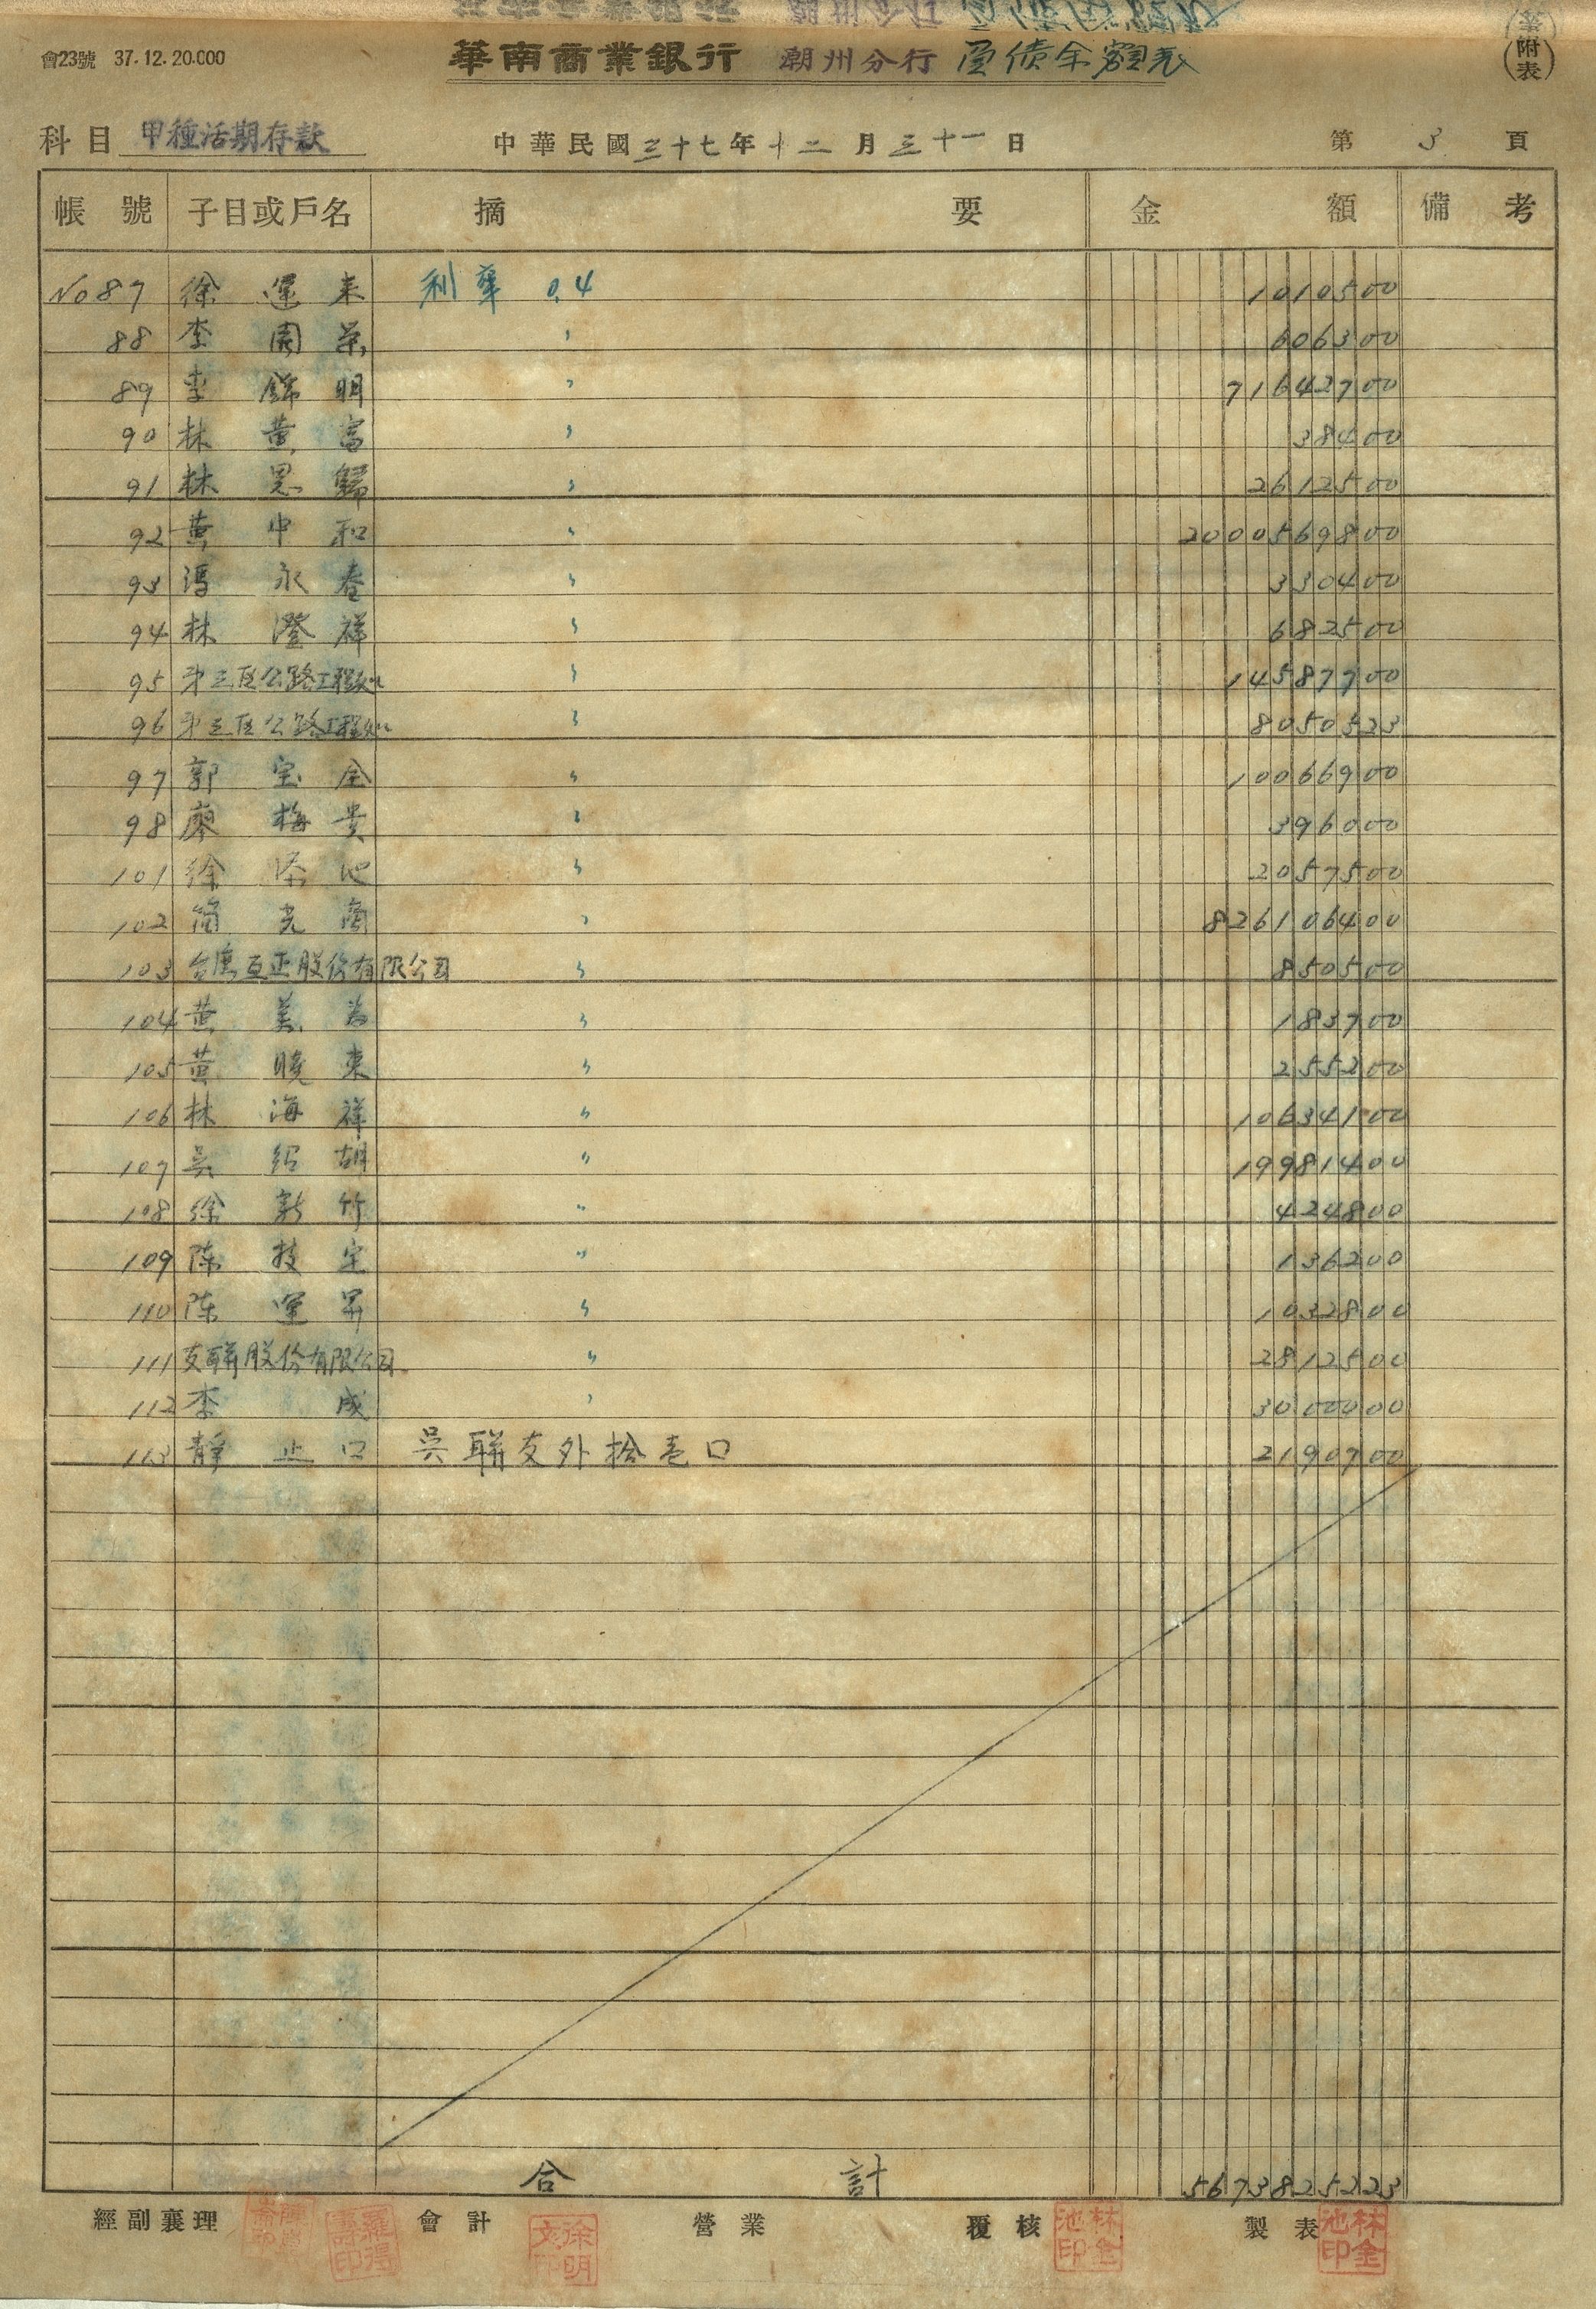 會23號 37.12.20.000
華南商業銀行 潮州分行 負債余額表
(附表)
科目 甲種活期存款 中華民國三十七年十二月三十一日 第3頁
帳號 子目或戶名 摘要 金額 備考
No87 徐運来 利率 0.4 1010500
88 李 606300
89 李錦明 〃 71642700
90 林黃富 〃 38400
91 林思歸 〃 2612500
92 黃中和 〃 2000569800
93 馮永春 〃 330400
94 林澄祥 〃 682500
95 第三區公路工程処 〃 14587700
96 第三區公路工程処 〃 8050523
97 郭宝全 〃 10066900
98 廖梅貴 〃 396000
101 徐添地 〃 2057500
102 簡 〃 826106400
103 股份有限公司 〃 850500
104 黃美 〃 183700
105 黃曉東 〃 255200
106 林海祥 〃 10634100
107 吳紹胡 〃 19981400
108 徐新竹 〃 424800
109 陈技定 〃 136200
110 陈運昇 〃 1032800
111 友聯股份有限公司 〃 2812500
112 李成 〃 3000000
113 靜止口 吳聯友外拾壱口 2190700
合計 5673825223
經副襄理 會計 營業 覆核 製表
徐明文印
林金池印
林金池印